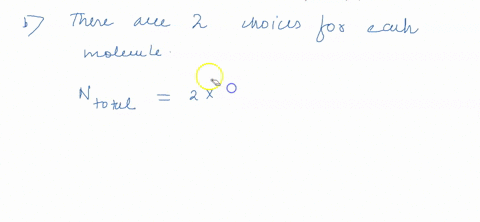 b) There are 2 choices for each
molecule.
N total = 2 ×